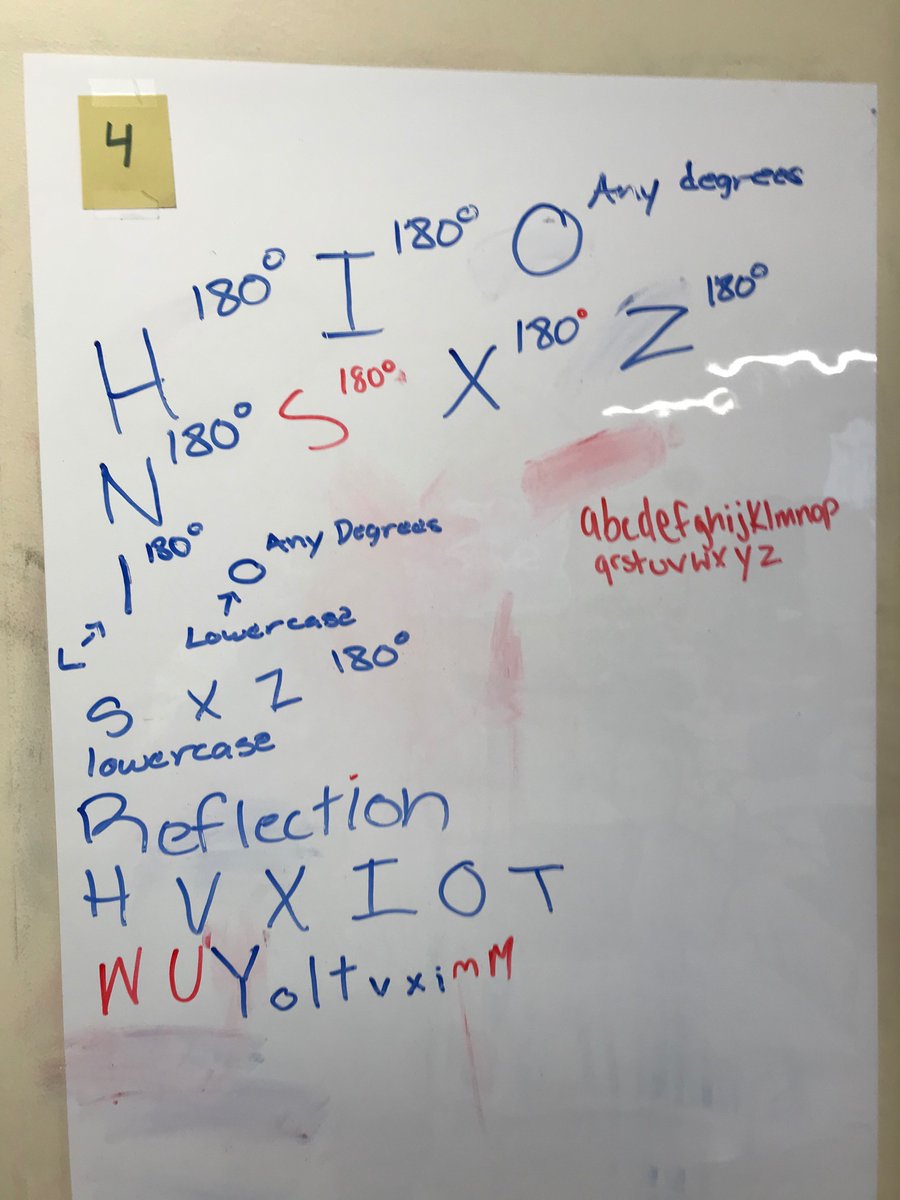 4
H 180° I 180° O Any degrees
N 180° S 180° X 180° Z 180°
l 180° o Any Degrees
L Lowercase
s x z 180°
lowercase
abcdefghijklmnop
qrstuvwxyz
Reflection
H V X I O T
W U Y o l t v x i m M